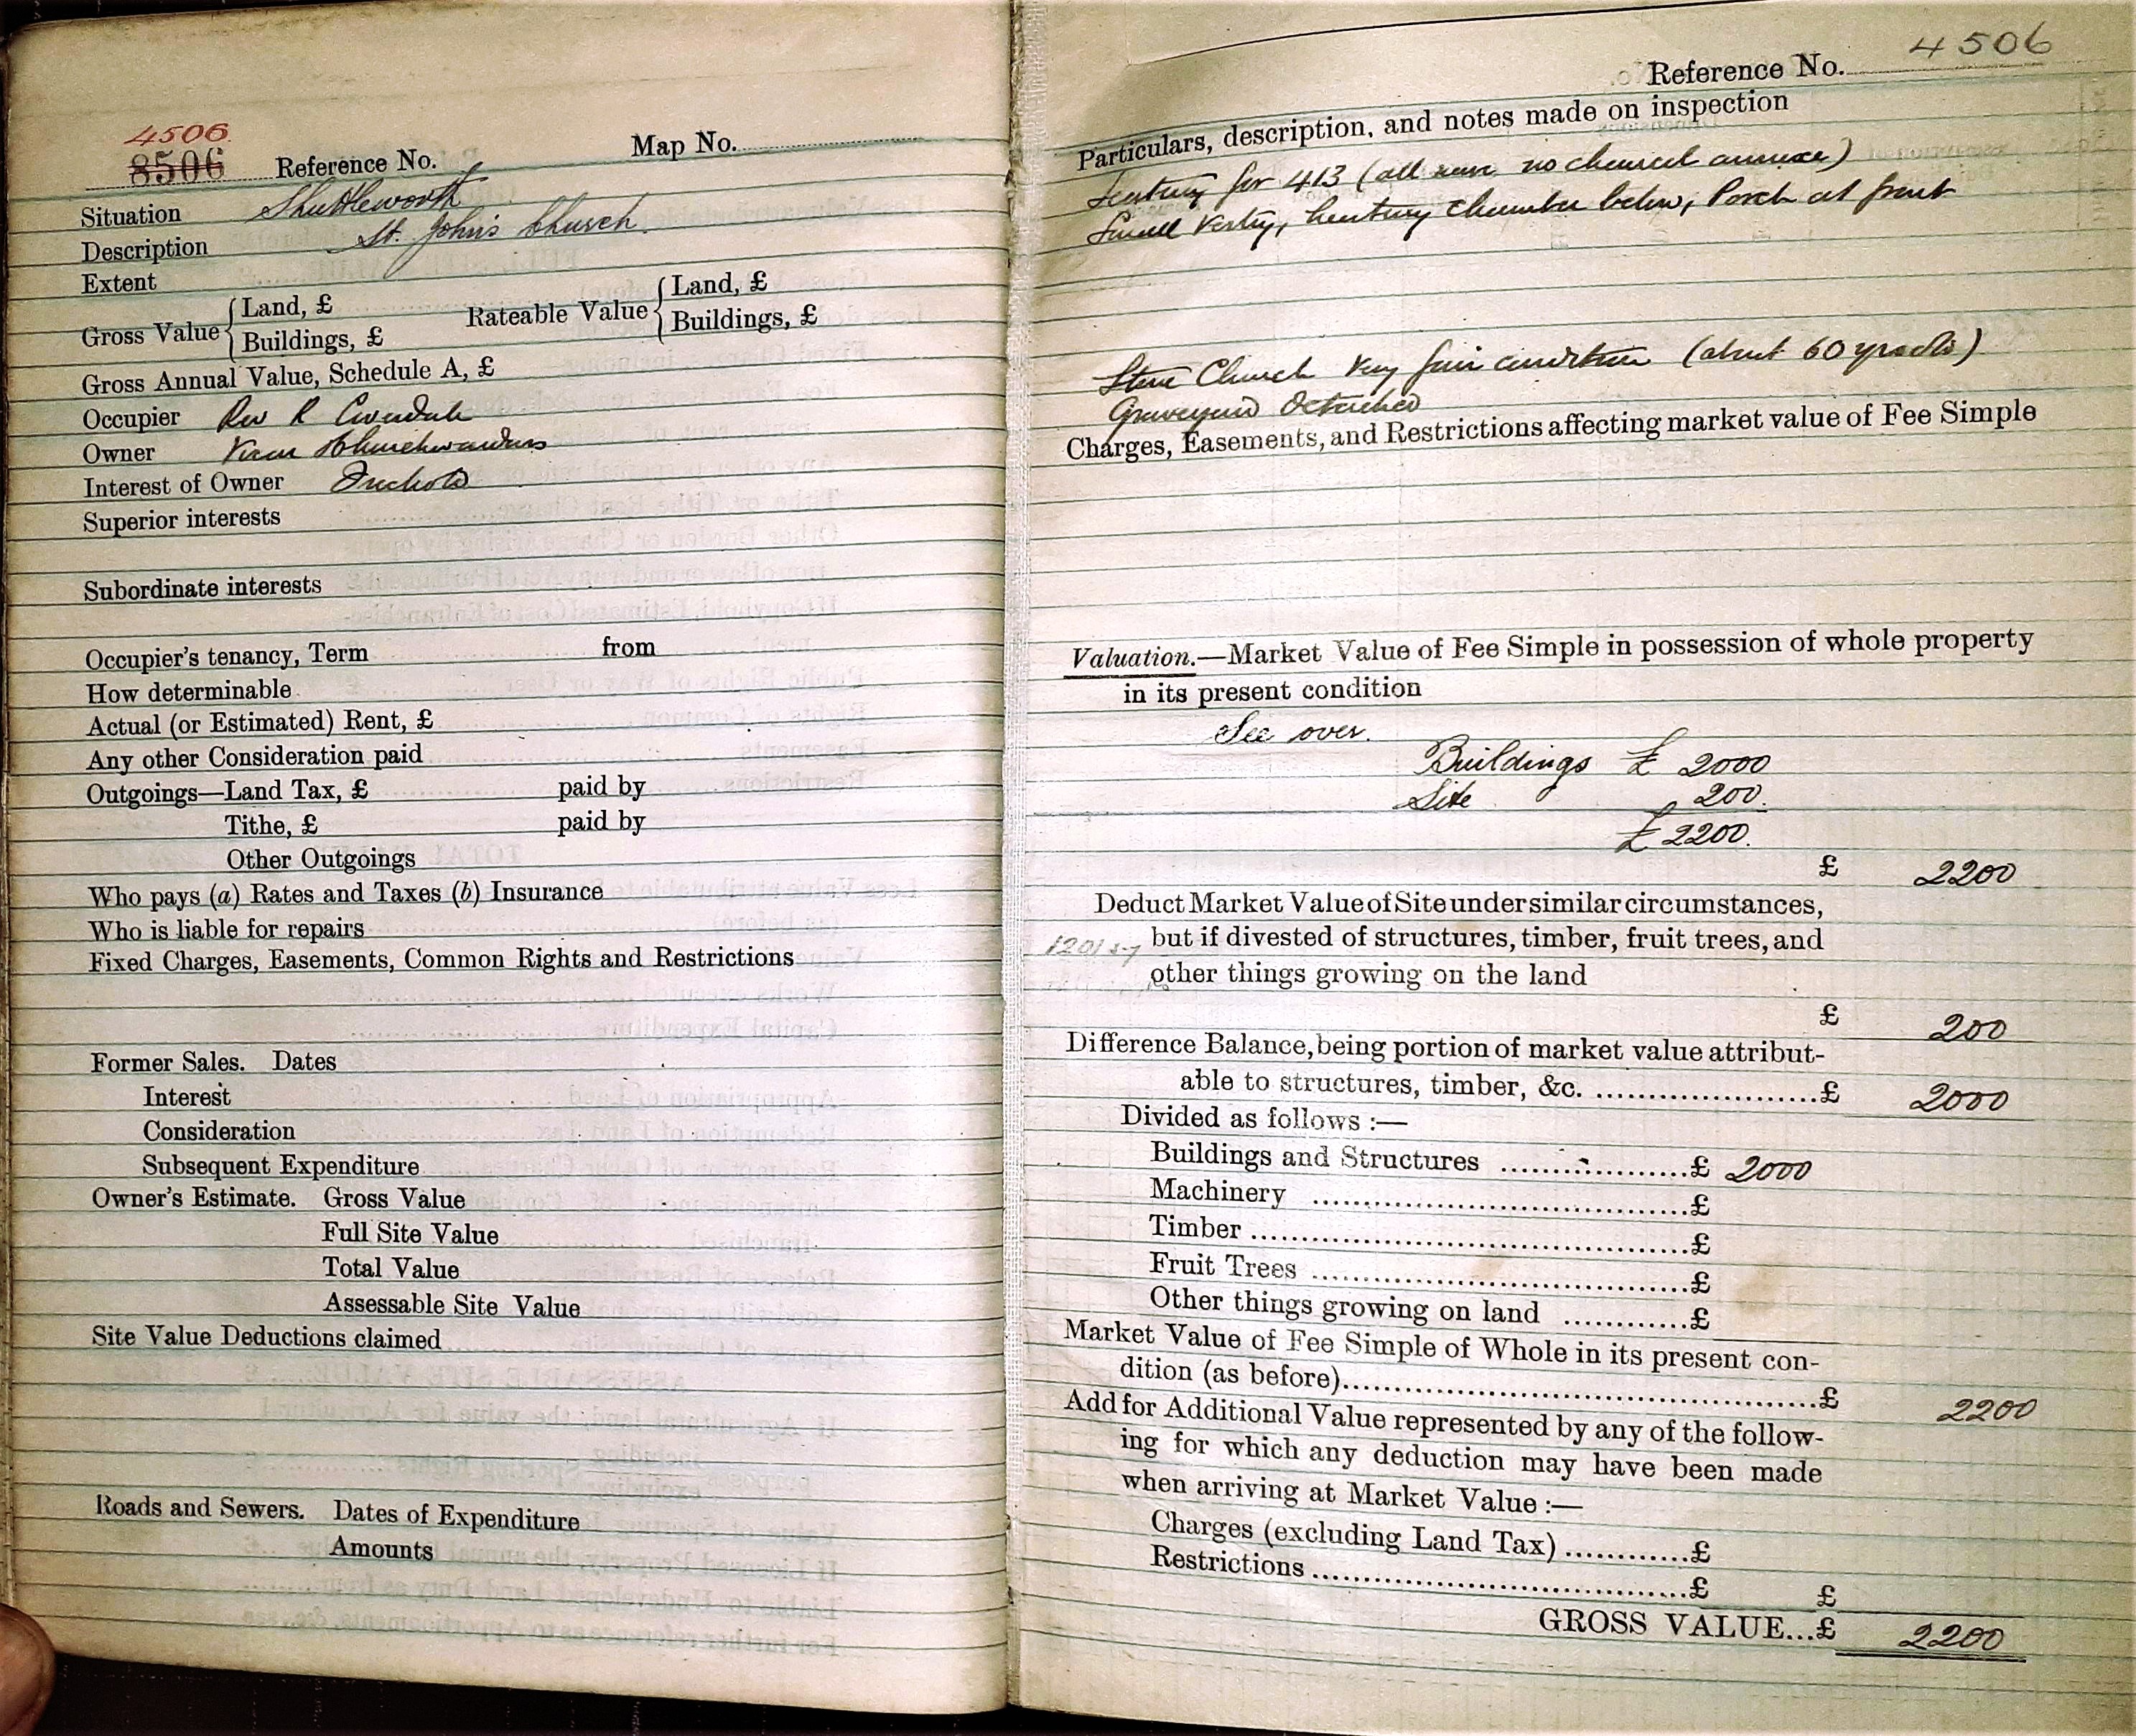 4506
8506 Reference No. Map No.
Situation Shuttleworth
Description St. John's Church
Extent
Gross Value { Land, £ Rateable Value { Land, £
Buildings, £ Buildings, £
Gross Annual Value, Schedule A, £
Occupier Rev R
Owner Vicar & Churchwardens
Interest of Owner Freehold
Superior interests
Subordinate interests
Occupier's tenancy, Term from
How determinable
Actual (or Estimated) Rent, £
Any other Consideration paid
Outgoings—Land Tax, £ paid by
Tithe, £ paid by
Other Outgoings
Who pays (a) Rates and Taxes (b) Insurance
Who is liable for repairs
Fixed Charges, Easements, Common Rights and Restrictions
Former Sales. Dates
Interest
Consideration
Subsequent Expenditure
Owner's Estimate. Gross Value
Full Site Value
Total Value
Assessable Site Value
Site Value Deductions claimed
Roads and Sewers. Dates of Expenditure
Amounts
Reference No. 4506
Particulars, description, and notes made on inspection
Seating for 413 (all nave no chancel annexe)
Small Vestry, heating chamber below, Porch at front
Stone Church very fair condition (about 60 yrs old)
Graveyard detached
Charges, Easements, and Restrictions affecting market value of Fee Simple
Valuation.—Market Value of Fee Simple in possession of whole property
in its present condition
See over.
Buildings £ 2000
Site 200.
£ 2200.
£ 2200
Deduct Market Value of Site under similar circumstances,
but if divested of structures, timber, fruit trees, and
1201 sy
other things growing on the land
£ 200
Difference Balance, being portion of market value attribut-
able to structures, timber, &c. ....................£ 2000
Divided as follows :—
Buildings and Structures ....................£ 2000
Machinery ....................£
Timber ....................£
Fruit Trees ....................£
Other things growing on land ............£
Market Value of Fee Simple of Whole in its present con-
dition (as before)....................£ 2200
Add for Additional Value represented by any of the follow-
ing for which any deduction may have been made
when arriving at Market Value :—
Charges (excluding Land Tax) ............£
Restrictions ....................£ £
GROSS VALUE...£ 2200